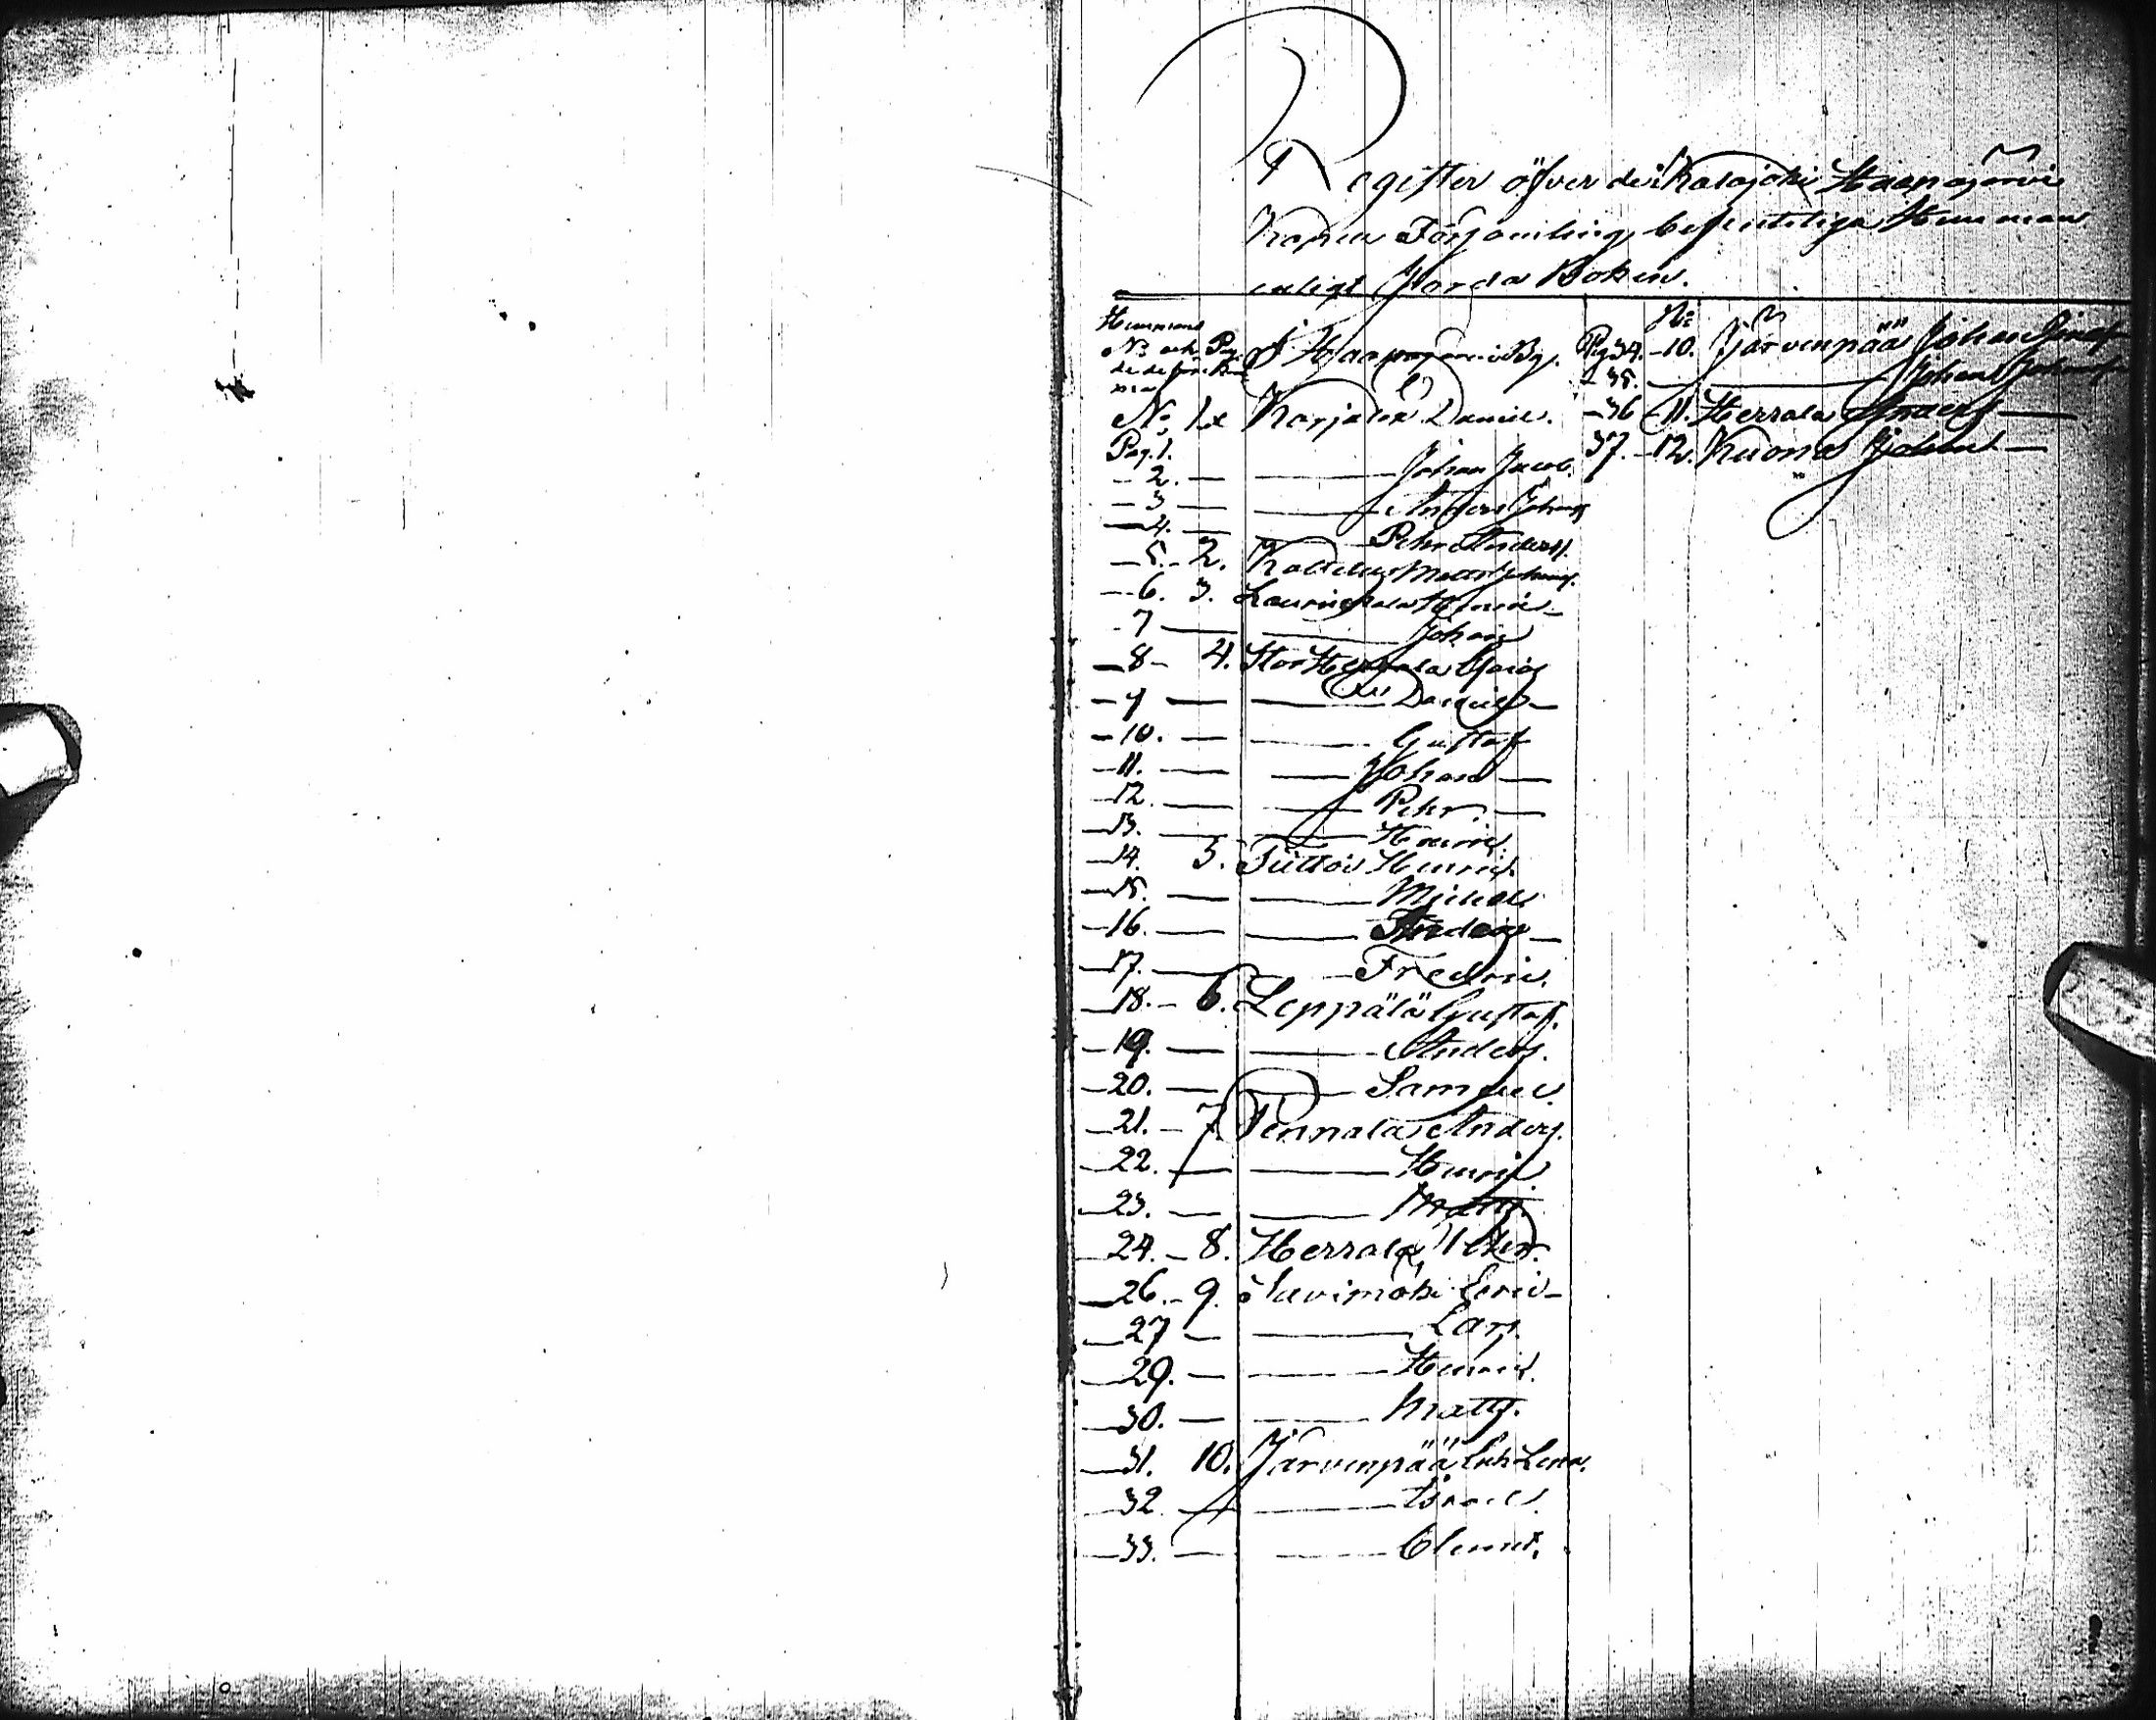 Register öfver de i Kalajoki Haapajervi
Kapell Församling befinteliga Hemman
enligt Jorda Boken.
Hemmans
No och Pag.
I Haapajervi By.
No 1 Karjala Daniel.
Pag. 1.
— 2. — — Johan Jacob.
— 3 — — Anders Johans
— 4. — — Pehr Anderss.
— 5. — 2. Matts Johans.
— 6. 3. Henric —
— 7 — — Johan
— 8 — 4. Stor
— 9 — — Daniel —
— 10. — — Gustaf
— 11. — — Johan —
— 12. — — Pehr. —
— 13. — — Henric.
— 14. 5. Tuttoi Henric.
— 15. — — Michel
— 16. — — Anders —
— 17. — — Fredric.
— 18. — 6. Leppälä Gustaf.
— 19. — — Anders.
— 20. — — Samuel.
— 21. — 7. Pennala Anders.
— 22. — — Henric.
— 23. — — Matts.
— 24. — 8. Herrala Pehr.
— 26. — 9. Savimäki Eric —
— 27 — — Lars.
— 29. — — Henric.
— 30. — — Matts.
— 31. 10. Järvenpää Enk Lena.
— 32. — — Israel.
— 33. — — Clemet.
No
Pag 34. — 10. Järvenpää Johan
— 35. — — Johan
— 36 — 11. Herrala Anders —
37. — 12. Kuona Johan —